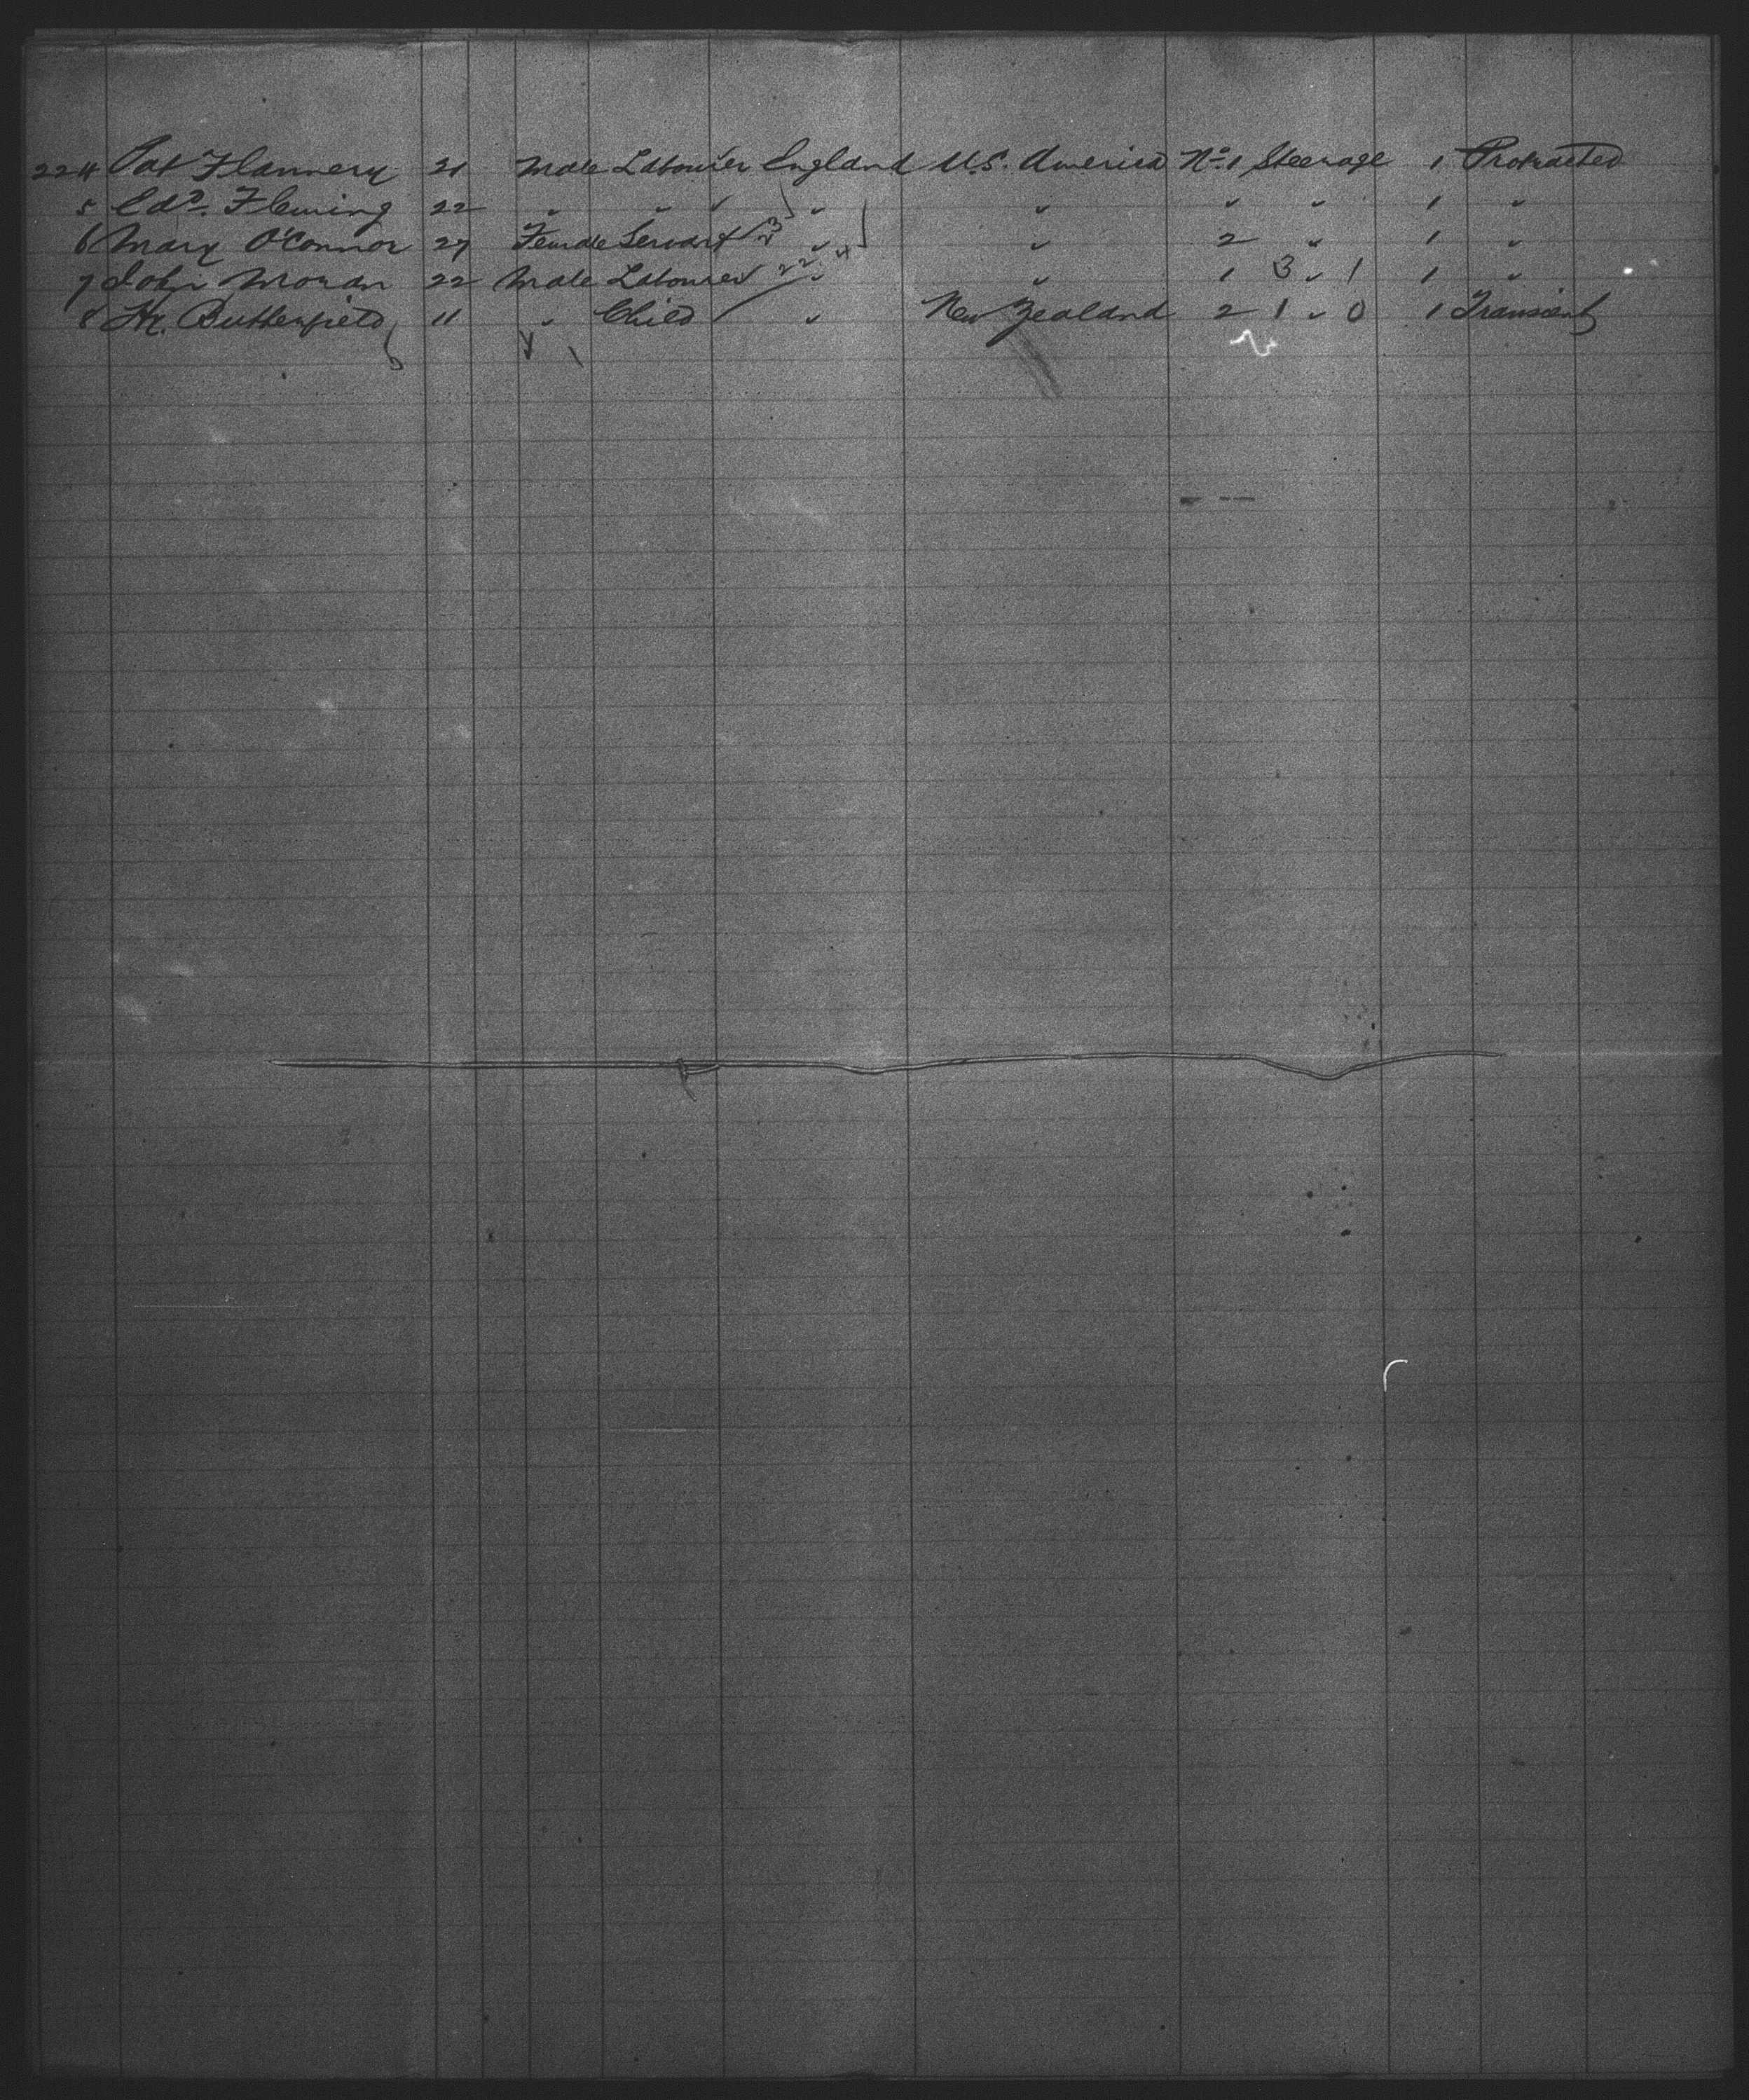 224 Pat Flannery 21 Male Labourer England U.S. America No. 1 Steerage 1 Protracted
5 Edd. Fleming 22 " " " " " " " 1 "
6 Mary O'Connor 27 Female Servant 23 " " 2 " 1 "
7 John Moran 22 Male Labourer 224 " " 1 3 " 1 1 "
8 Hy. Butterfield 11 " Child " New Zealand 2 1 " 0 1 Transient